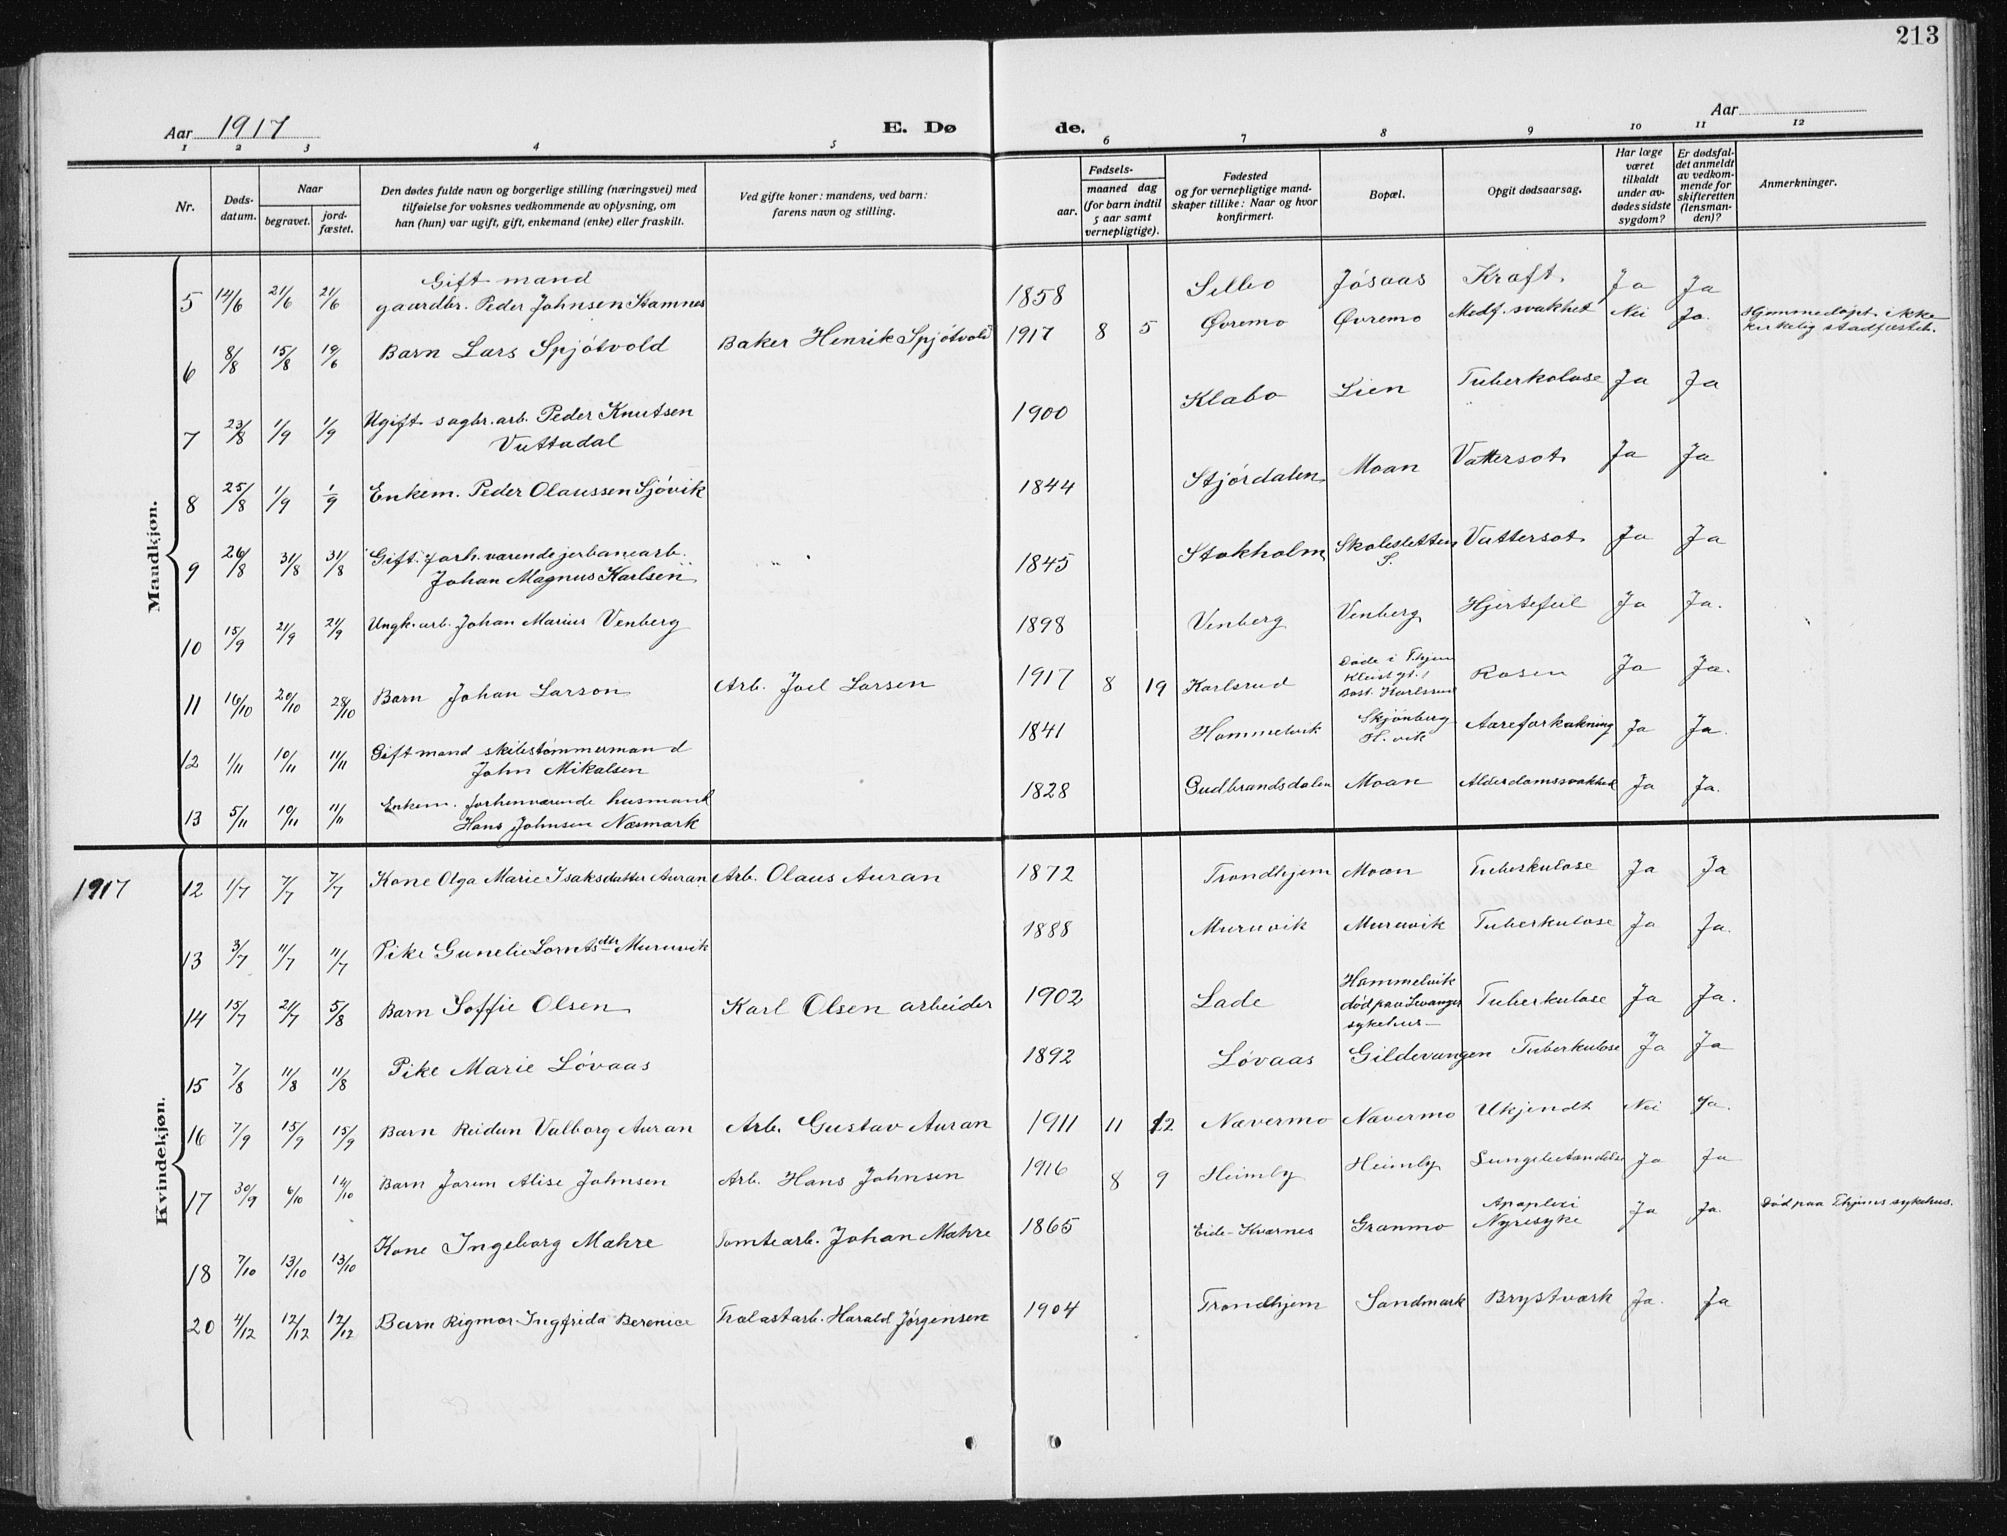 213
Aar 1917
E. Dø de.
Aar
1 2 3 4 5 6 7 8 9 10 11 12
Nr.
Døds-datum.
Naar
begravet.
jord-fæstet.
Den dødes fulde navn og borgerlige stilling (næringsvei) med
tilføielse for voksnes vedkommende av oplysning, om
han (hun) var ugift, gift, enkemand (enke) eller fraskilt.
Ved gifte koner: mandens, ved barn:
farens navn og stilling.
Fødsels-
aar.
maaned dag
(for barn indtil
5 aar samt
vernepligtige).
Fødested
og for vernepligtige mand-
skaper tillike: Naar og hvor
konfirmert.
Bopæl.
Opgit dødsaarsag.
Har læge
været
tilkaldt
under av-
dødes sidste
sygdom?
Er dødsfal-
det anmeldt
av vedkom-
mende for
skifteretten
(lensman-
den)?
Anmerkninger.
Mandkjøn.
5 14/6 21/6 21/6 Gift mand gaardbr. Peder Johnsen Stamnes 1858 Selbo Jøsaas Kræft. Ja Ja
6 8/8 15/8 19/6 Barn Lars Spjøtvold Baker Henrik Spjøtvold 1917 8 5 Øvremo Øvremo Medf. svakhet Nei Ja. Hjemmedøpt, ikke kirkelig stadfæstet.
7 23/8 1/9 1/9 Ugift sagbr. arb. Peder Knutsen Vuttudal 1900 Klæbo Lien Tuberkolose Ja Ja
8 25/8 1/9 1/9 Enkem. Peder Olaussen Sjøvik 1844 Stjørdalen Moan Vattersot Ja Ja
9 26/8 31/8 31/8 Gift. forh. værende jerbanearb. Johan Magnus Karlsen 1845 Stokholm Skolesletten S. Vattersot Ja Ja
10 15/9 21/9 21/9 Ungk. arb. Johan Marius Venberg 1898 Venberg Venberg Hjertefeil Ja Ja.
11 16/10 20/10 28/10 Barn Johan Larson Arb. Joel Larsen 1917 8 19 Karlsrud Døde i Thjem Bost. Karlsrud Rosen Ja Ja.
12 1/11 10/11 11/11 Gift mand skibstømmermand John Mikalsen 1841 Hommelvik Skjønberg H.vik Aareforkalkning Ja Ja.
13 5/11 10/11 11/11 Enkem. forhenværende husmand Hans Johnsen Næsmark 1828 Gudbrandsdalen Moan Alderdomssvakhed Ja Ja.
1917
Kvindekjøn.
12 1/7 7/7 7/7 Kone Olga Marie Isaksdatter Auran Arb. Olaus Auran 1872 Trondhjem Moan Tuberkulose Ja Ja
13 3/7 11/7 11/7 Pike Gunelie Lorntsdtr Muruvik 1888 Muruvik Muruvik Tuberkulose Ja Ja.
14 15/7 21/7 5/8 Barn Soffie Olsen Karl Olsen arbeider 1902 Lade Hommelvik død paa Levanger sykehus Tuberkulose Ja Ja.
15 7/8 11/8 11/8 Pike Marie Løvaas 1892 Løvaas Gildevangen Tuberkulose Ja Ja
16 7/9 15/9 15/9 Barn Reidun Valborg Auran Arb. Gustav Auran 1911 11 12 Nævermo Nævermo Ukjendt Nei Ja.
17 30/9 6/10 14/10 Barn Jorun Alise Johnsen Arb. Hans Johnsen 1916 8 9 Heimly Heimly Lungebetændelse Ja Ja
18 7/10 13/10 13/10 Kone Ingeborg Mæhre Tomtearb. Johan Mæhre 1865 Eide-Kværnes Granmo Apoplexi Nyresyke Ja Ja. Død paa Thjems sykehus.
20 4/12 12/12 12/12 Barn Rigmor Ingfrida Berenice Trælastarb. Harald Jørgensen 1904 Trondhjem Sandmark Brystværk Ja. Ja